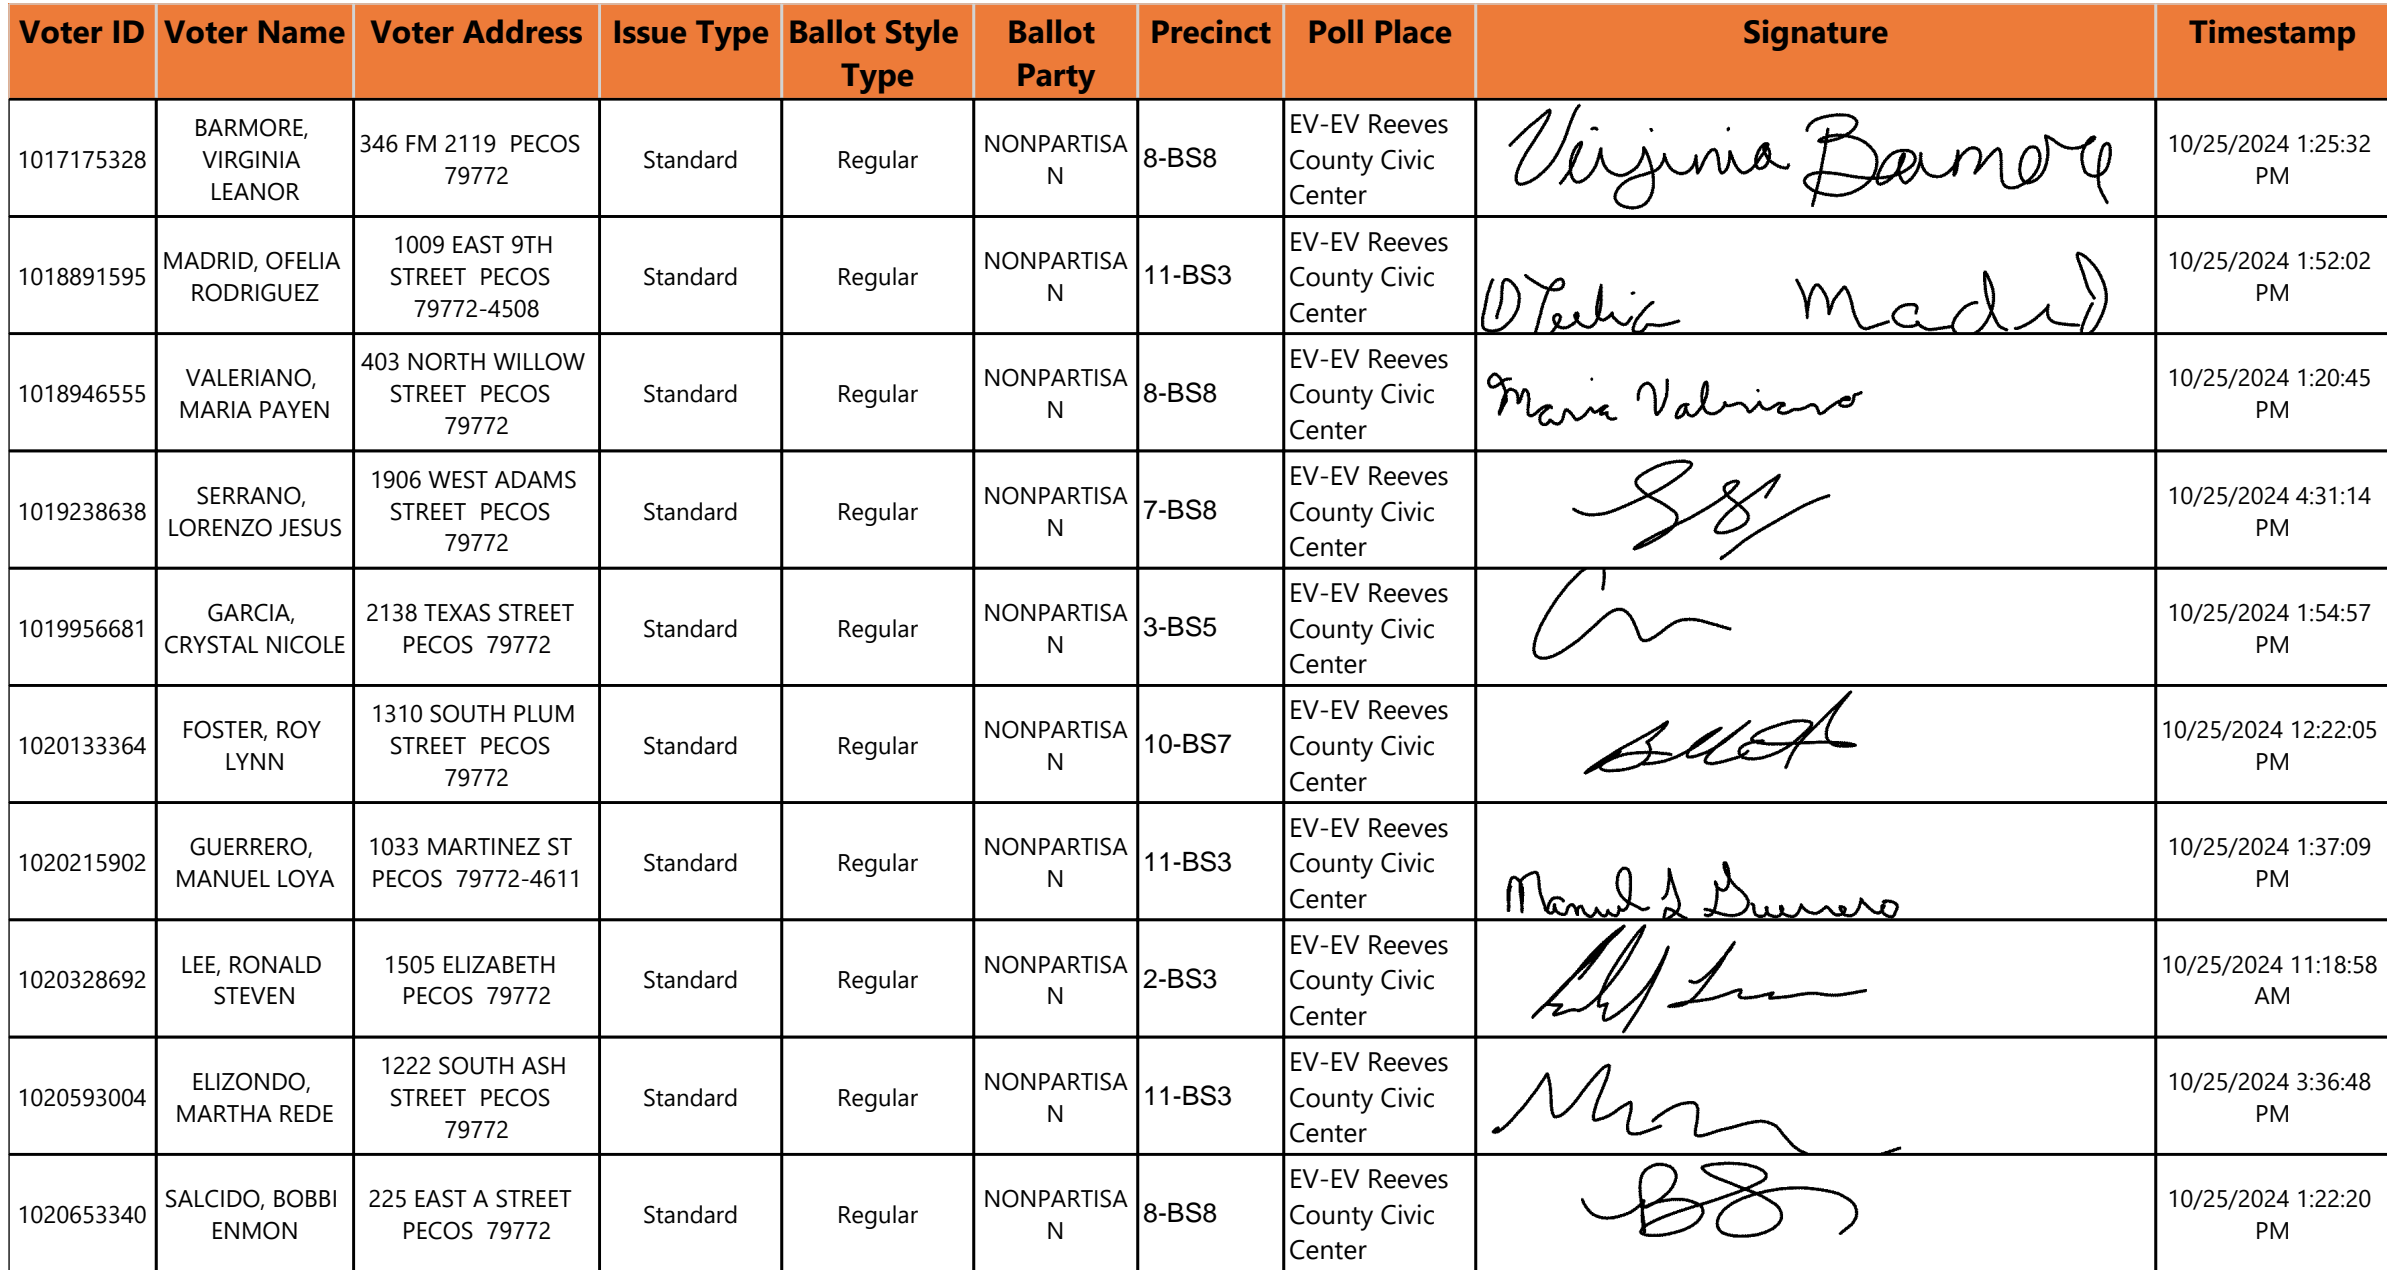 Voter ID Voter Name Voter Address Issue Type Ballot Style Type Ballot Party Precinct Poll Place Signature Timestamp
1017175328 BARMORE, VIRGINIA LEANOR 346 FM 2119 PECOS 79772 Standard Regular NONPARTISAN 8-BS8 EV-EV Reeves County Civic Center Virginia Barmore 10/25/2024 1:25:32 PM
1018891595 MADRID, OFELIA RODRIGUEZ 1009 EAST 9TH STREET PECOS 79772-4508 Standard Regular NONPARTISAN 11-BS3 EV-EV Reeves County Civic Center Ofelia Madrid 10/25/2024 1:52:02 PM
1018946555 VALERIANO, MARIA PAYEN 403 NORTH WILLOW STREET PECOS 79772 Standard Regular NONPARTISAN 8-BS8 EV-EV Reeves County Civic Center Maria Valeriano 10/25/2024 1:20:45 PM
1019238638 SERRANO, LORENZO JESUS 1906 WEST ADAMS STREET PECOS 79772 Standard Regular NONPARTISAN 7-BS8 EV-EV Reeves County Civic Center 10/25/2024 4:31:14 PM
1019956681 GARCIA, CRYSTAL NICOLE 2138 TEXAS STREET PECOS 79772 Standard Regular NONPARTISAN 3-BS5 EV-EV Reeves County Civic Center 10/25/2024 1:54:57 PM
1020133364 FOSTER, ROY LYNN 1310 SOUTH PLUM STREET PECOS 79772 Standard Regular NONPARTISAN 10-BS7 EV-EV Reeves County Civic Center 10/25/2024 12:22:05 PM
1020215902 GUERRERO, MANUEL LOYA 1033 MARTINEZ ST PECOS 79772-4611 Standard Regular NONPARTISAN 11-BS3 EV-EV Reeves County Civic Center Manuel L Guerrero 10/25/2024 1:37:09 PM
1020328692 LEE, RONALD STEVEN 1505 ELIZABETH PECOS 79772 Standard Regular NONPARTISAN 2-BS3 EV-EV Reeves County Civic Center 10/25/2024 11:18:58 AM
1020593004 ELIZONDO, MARTHA REDE 1222 SOUTH ASH STREET PECOS 79772 Standard Regular NONPARTISAN 11-BS3 EV-EV Reeves County Civic Center 10/25/2024 3:36:48 PM
1020653340 SALCIDO, BOBBI ENMON 225 EAST A STREET PECOS 79772 Standard Regular NONPARTISAN 8-BS8 EV-EV Reeves County Civic Center BS 10/25/2024 1:22:20 PM